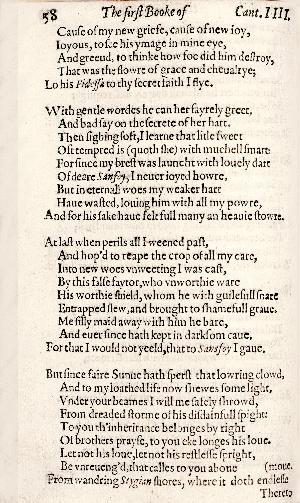 58 The first Booke of Cant. IIII.
Cause of my new griefe, cause of new ioy,
Ioyous, to see his ymage in mine eye,
And greeud, to thinke how foe did him destroy,
That was the flowre of grace and cheualrye;
Lo his Fidessa to thy secret faith I flye.
With gentle wordes he can her fayrely greet,
And bad say on the secrete of her hart.
Then sighing soft, I learne that litle sweet
Oft tempred is (quoth she) with muchell smart:
For since my brest was launcht with louely dart
Of deare Sansfoy, I neuer ioyed howre,
But in eternall woes my weaker hart
Haue wasted, louing him with all my powre,
And for his sake haue felt full many an heauie stowre.
At last when perils all I weened past,
And hop'd to reape the crop of all my care,
Into new woes vnweeting I was cast,
By this false faytor, who vnworthie ware
His worthie shield, whom he with guilefull snare
Entrapped slew, and brought to shamefull graue.
Me silly maid away with him he bare,
And euer since hath kept in darksom caue,
For that I would not yeeld, that to Sansfoy I gaue.
But since faire Sunne hath sperst that lowring clowd,
And to my loathed life now shewes some light,
Vnder your beames I will me safely shrowd,
From dreaded storme of his disdainfull spight:
To you th'inheritance belonges by right
Of brothers prayse, to you eke longes his loue.
Let not his loue, let not his restlesse spright,
Be vnreueng'd, that calles to you aboue
From wandring Stygian shores, where it doth endlesse (moue.
Thereto